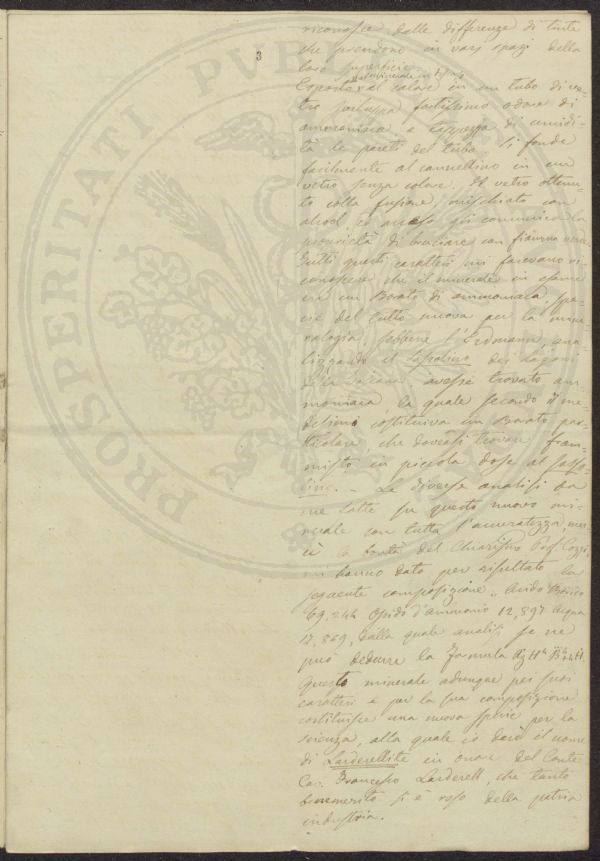 3
PROSPERITATI PVBL
riconosce dalle differenze di tinte
che prendono in varj spazi della
loro superficie
Esposto al calore in un tubo di ve-
tro sviluppa fortissimo odore di
ammoniaca e tappezza di umidi-
tà le pareti del tubo. Si fonde
facilmente al cannellino in un
vetro senza colore. Il vetro ottenu-
to colla fusione, mischiato con
alcool, ed acceso gli comunica la
proprietà di bruciare con fiamma verde
Tutti questi caratteri mi facevano ri
conoscere che il minerale in esame
era un Borato di ammoniaca, spe-
cie del tutto nuova per la mine-
ralogia sebbene l'Erdmann, ana
lizzando il Sassolino dei Lagoni
della Toscana, avesse trovato am
moniaca, la quale secondo il me-
desimo costituiva un Borato par-
ticolare che dovessi trovare fram-
misto in piccola dose al sasso-
lino. - Le diverse analisi da
me fatte su questo nuovo mi-
nerale con tutta l'accuratezza, mer-
cè la bontà del Chiarissmo Prof. Cozzi,
mi hanno dato per risultato la
seguente composizione. Acido Borico
69,244 Ossido d'ammonio 12,897 Acqua
17,859, dalla quale analisi se ne
può dedurre la formula
Questo minerale adunque pei suoi
caratteri e per la sua composizione
costituisce una nuova specie per la
scienza, alla quale io darò il nome
di Larderellite in onore del Conte
Cav. Francesco Larderell, che tanto
benemerito si è reso della patria
industria.